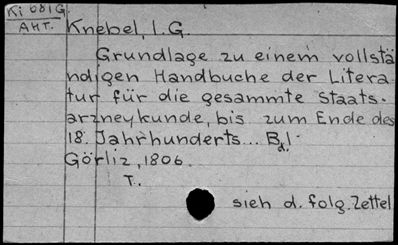 Ki 681G.
Aht.
Knebel, I.G.
Grundlage zu einem vollstä
ndigen Handbuche der Litera
tur für die gesammte Staats.
arzneykunde, bis zum Ende des
18. Jahrhunderts... Bd. I.
Görliz, 1806.
T.
sieh d. folg. Zettel